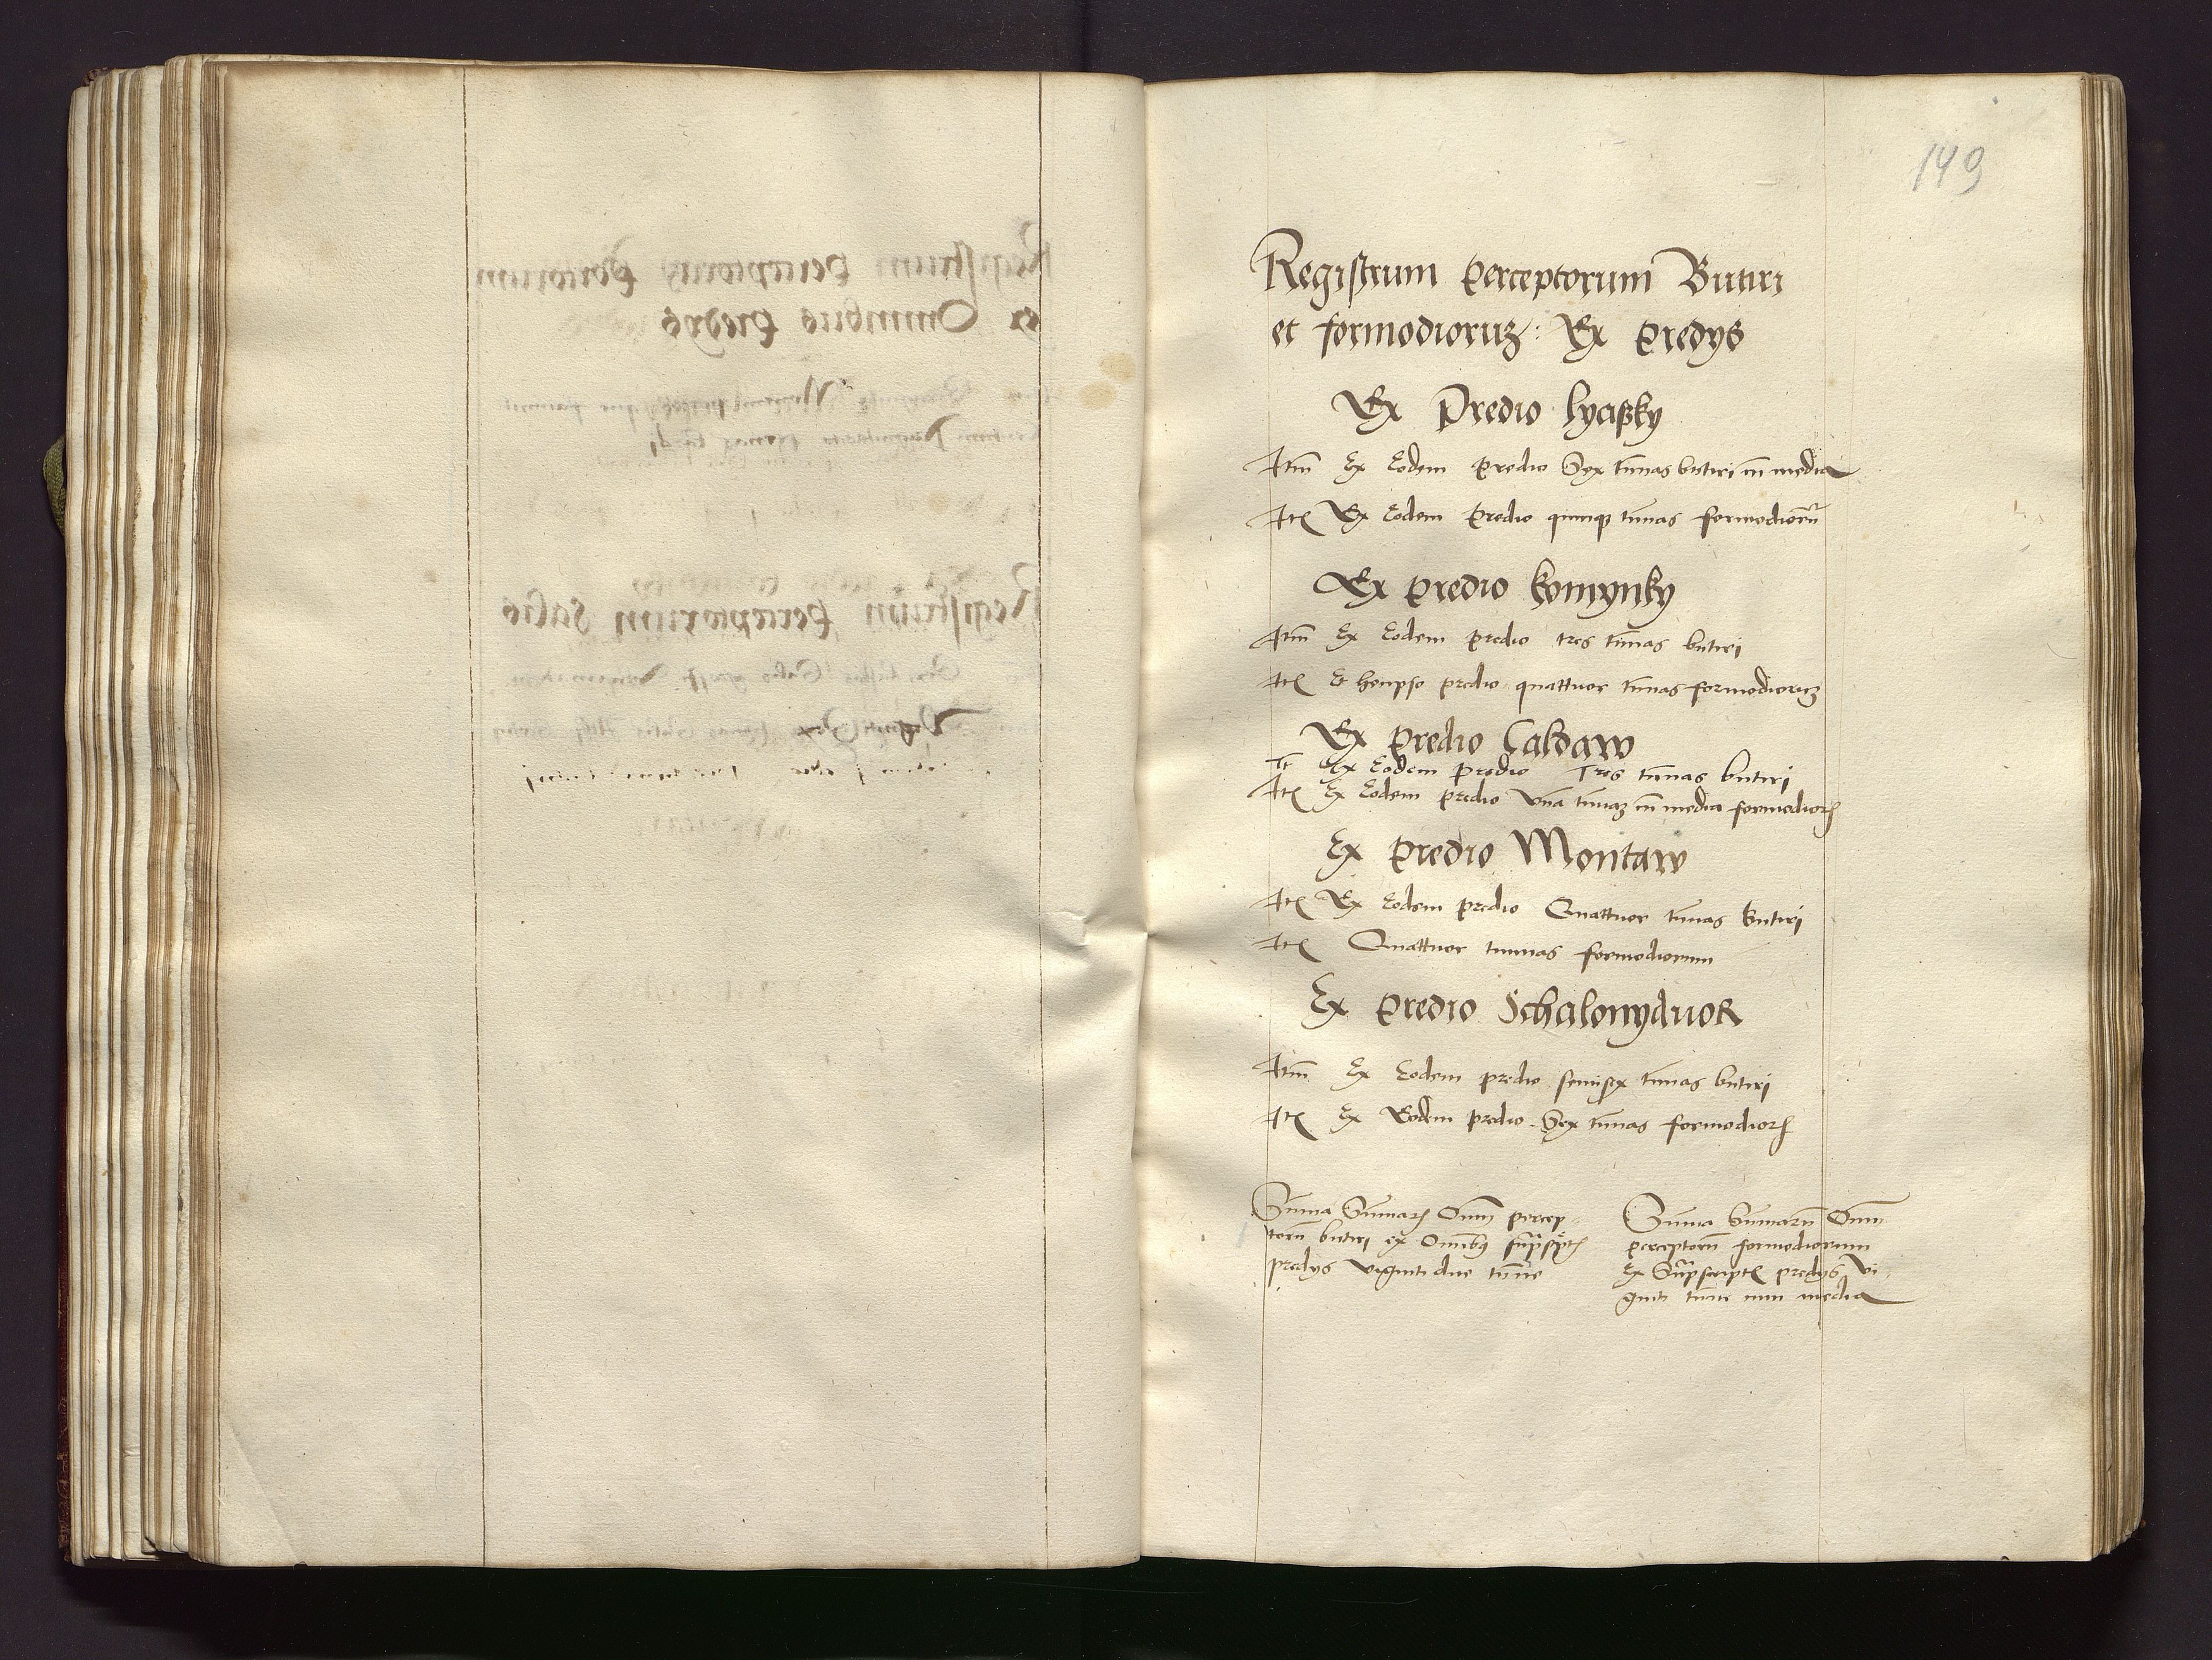 149
Registrum perceptorum Butiri
et formodioruz: Ex predys
Ex Predio lyaßky
Itm Ex Eodem predio Sex tunas butiri cu media
Ite Ex Eodem predio quinqz tunas formodioru
Ex predio komynky
Itm Ex Eodem predio tres tunas butiri
Ite predio quattuor tunas formodioruz
Ex predio Caldaw
It Ex Eodem predio Tres tunas butiri
Ite Ex Eodem predio Vna tunaz cu media formodior
Ex predio Montaw
Ite Ex Eodem predio Quattuor tunas butiri
Ite Quattuor tunnas formodiorum
Ex predio Schalonyduor
Itm Ex Eodem predio semisex tunas butiri
Ite Ex Eodem predio Sex tunas formodior
Suma Sumar Oim percep-
toru butiri ex Omibus suprscript
predys viginti due tune
Suma Sumaru Oim
perceptoru formodiorum
Ex Suprascript predys vi-
ginti tune cum media